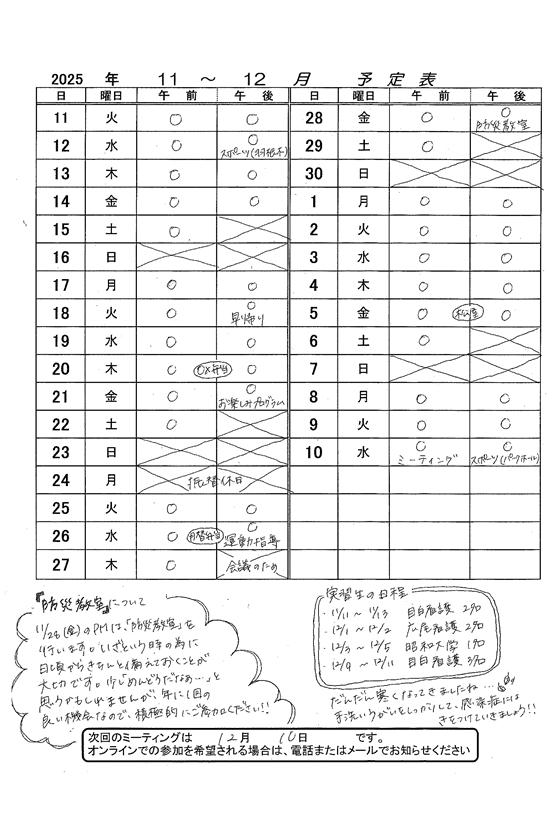 2025 年 11 ～ 12 月 予定表
日 曜日 午前 午後 日 曜日 午前 午後
11 火 ○ ○ 28 金 ○ ○ 防災教室
12 水 ○ ○ スポーツ(羽根木) 29 土 ○
13 木 ○ ○ 30 日
14 金 ○ ○ 1 月 ○ ○
15 土 ○ 2 火 ○ ○
16 日 3 水 ○ ○
17 月 ○ ○ 4 木 ○ ○
18 火 ○ ○ 早帰り 5 金 ○ 松屋 ○
19 水 ○ ○ 6 土 ○
20 木 ○ 弁当 ○ 7 日
21 金 ○ ○ お楽しみプログラム 8 月 ○ ○
22 土 ○ 9 火 ○ ○
23 日 10 水 ○ ミーティング ○ スポーツ(パークホール)
24 月 振替休日
25 火 ○ ○
26 水 ○ 弁当 ○ 運動指導
27 木 ○ 会議のため
『防災教室』について
11/28(金)のPMは、「防災教室」を
行います。いざという時の為に
日頃からきちんと備えておくことが
大切です。「めんどうだなぁ…」と
思うかもしれませんが、年に1回の
良い機会なので、積極的にご参加ください!!
実習生の日程
・11/11～11/13 目白看護 2名
・12/1～12/2 広尾看護 2名
・12/3～12/5 昭和大学 1名
・12/9～12/11 目白看護 3名
だんだん寒くなってきましたね…
手洗いうがいをしっかりして、感染症には
気をつけていきましょう!!
次回のミーティングは 12月 10日 です。
オンラインでの参加を希望される場合は、電話またはメールでお知らせください